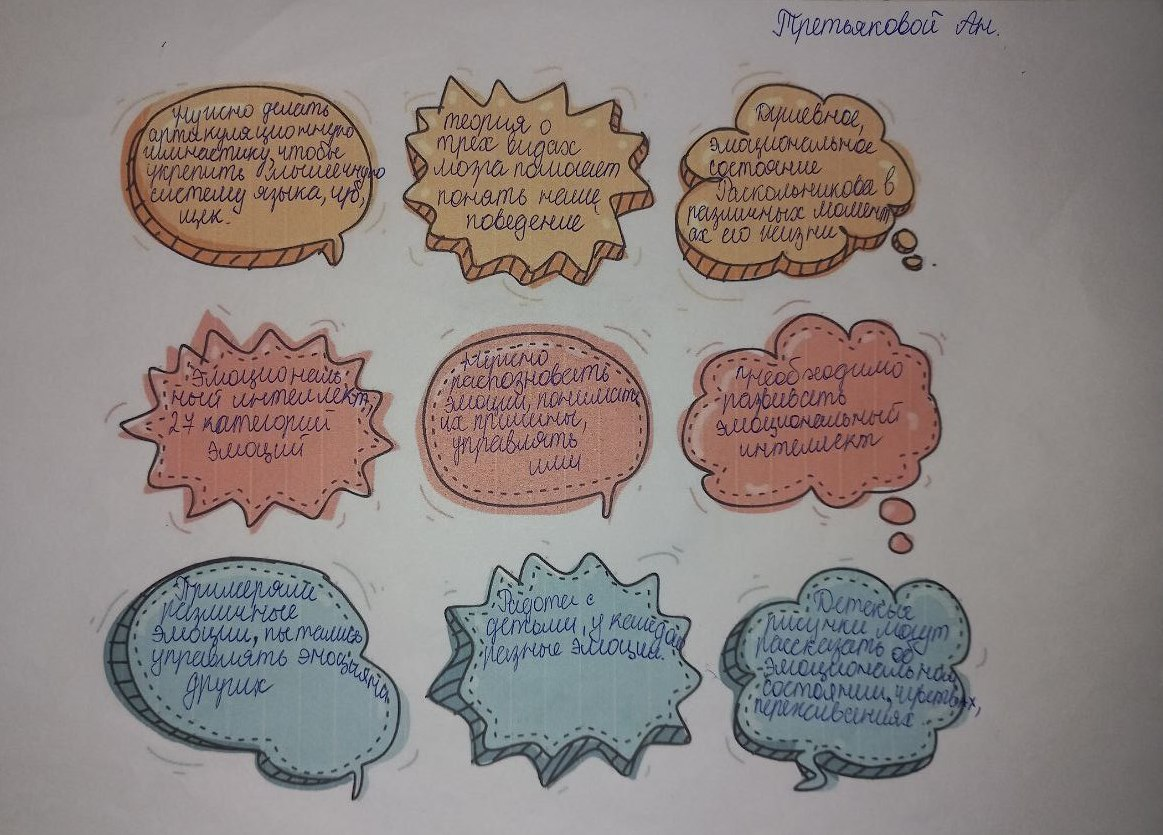 Третьяковой Ан.
Нужно делать
артикуляционную
гимнастику, чтобы
укрепить мышечную
систему языка, губ,
щек.
теория о
трех видах
мозга помогает
понять наше
поведение
Душевное,
эмоциональное
состояние
Раскольникова в
различных момент
ах его жизни
Эмоциональ
ный интеллект,
27 категорий
эмоций
Нужно
распозновать
эмоции, понимать
их причины,
управлять
ими
Необходимо
развивать
эмоциональный
интеллект
Примеряли
различные
эмоции, пытались
управлять эмоциями
других
Работа с
детьми, у каждого
разные эмоции.
Детские
рисунки могут
рассказать об
эмоциональном
состоянии, чувствах,
переживаниях